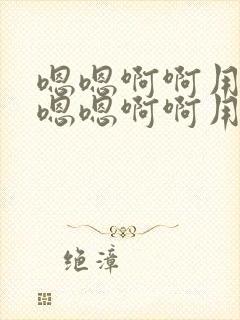 嗯嗯啊啊用
嗯嗯啊啊用
绝漳